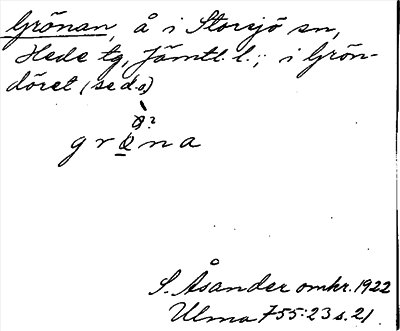 Grönan, å i Storsjö sn,
Hede tg, Jämtl. l.; i Grön-
döret (se d.o)
ò?
grøna
S. Åsander omkr. 1922
Ulma 755:23 s. 21